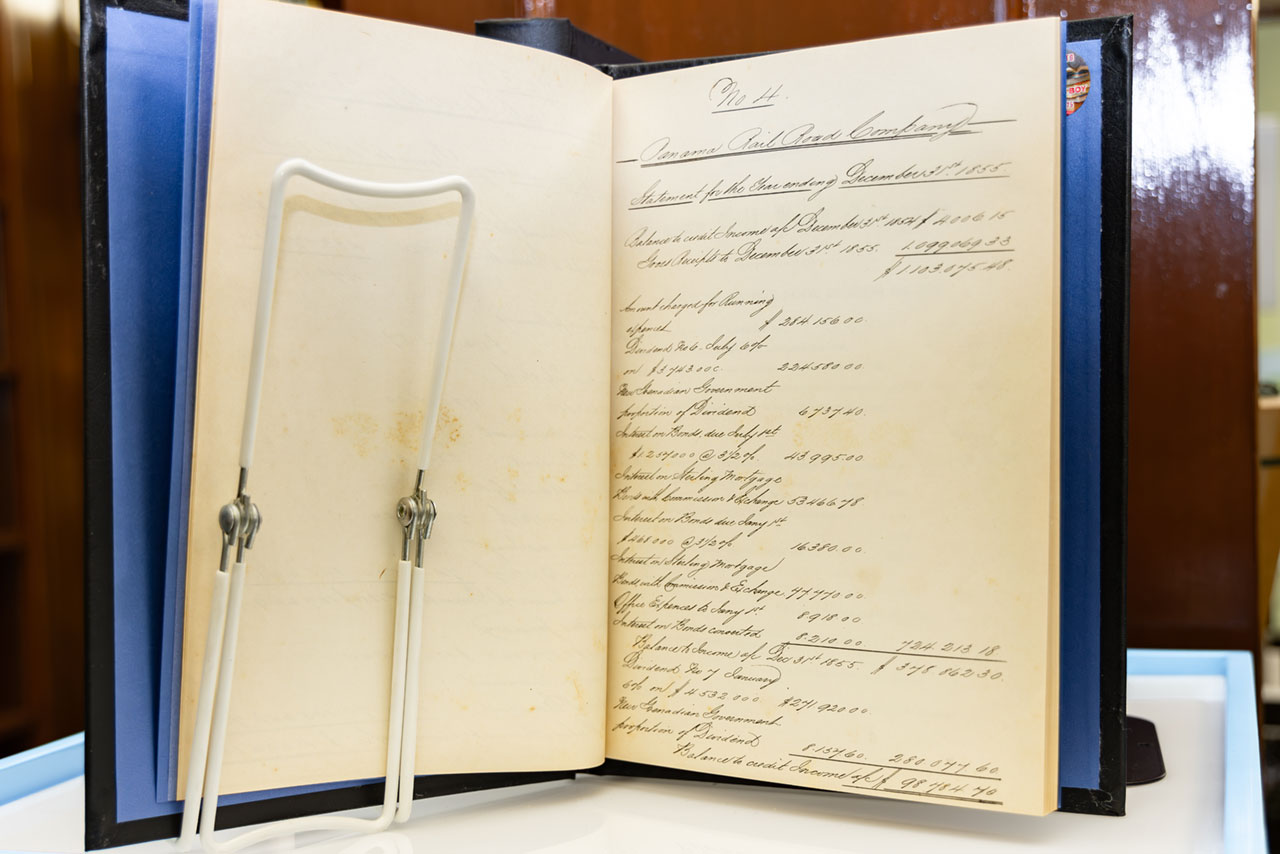 No 4.
Panama Rail Road Company
Statement for the Year ending December 31st 1855.
Balance to credit Income a/c December 31st 1854 $ 4006.15
Gross Receipts to December 31st 1855. 1.099069.33
$ 1103.075.48.
Amount charged for Running
expences $ 284.156.00.
Dividend No 6. July 6%
on $3.743.000. 224.580.00
New Grenadian Government
proportion of Dividend 6.737.40.
Interest on Bonds due July 1st
$1.257000 @ 3 1/2 %. 43.995.00
Interest on Sterling Mortgage
Bonds with Commission & Exchange 53.466.78.
Interest on Bonds due Jany 1st
$468.000 @ 3 1/2 % 16380.00.
Interest on Sterling Mortgage
Bonds with Commission & Exchange 77470.00.
Office Expences to Jany 1st 8.918.00
Interest on Bonds converted 8.210.00. 724.213.18
Balance to Income a/c Dec 31st 1855. $ 378.862.30.
Dividend No 7 January
6% on $ 4.532.000. $271.920.00.
New Grenadian Government
proportion of Dividend 8.157.60. 280.077.60
Balance to credit Income a/c $ 98.784.70